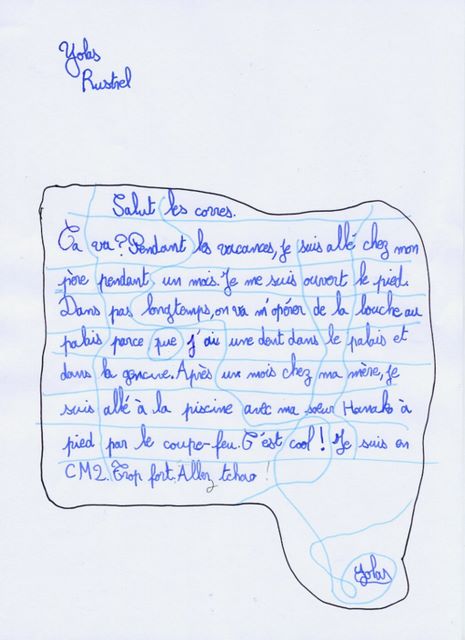 Yolas
Rustrel
Salut les corres.
Ça va? Pendant les vacances, je suis allé chez mon
père pendant un mois. Je me suis ouvert le pied.
Dans pas longtemps, on va m'opérer de la bouche au
palais parce que j'ai une dent dans le palais et
dans la gencive. Après un mois chez ma mère, je
suis allé à la piscine avec ma sœur Hanako à
pied par le coupe-feu. C'est cool! Je suis en
CM2. Trop fort. Allez tchao!
Yolas